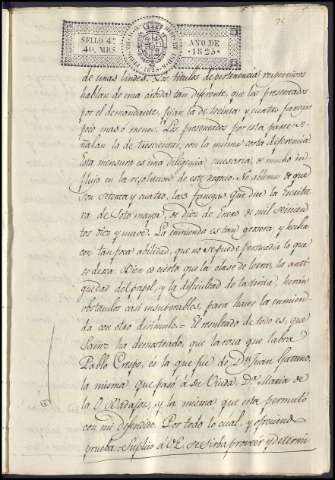 SELLO 4.º
40. MRS.
AÑO DE
1825
de unas lindes. Los titulos de pertenencia respectivos
hablan de una cabida tan diferente, que los presentados
por el demandante, fijan la de treinta y cuatro fanegas
poco mas o menos. Los presentados por esta parte se-
ñalan la de
con la misma corta diferencia.
esta mensura es una diligencia necesaria, de mucho in-
flujo en la resolucion de este negocio. No adorme de que
son setenta y cuatro, las fanegas que dice la Escritu-
ra de Soto mayor, de diez de Enero de mil setecientos
diez y nueve. La enmienda es tan grosera y hecha
con tan poca abilidad, que no se puede persuadir lo que
se desea. Bien es cierto que la clase de letra, la anti-
guedad del papel, y la dificultad de la tinta, heran
obstaculos casi insuperables, para hacer la enmien-
da con otro disimulo. El resultado de todo es, que
Sainz ha demostrado, que la rosa que labra
Pablo Crespo, es la que fue de Dn. Juan
la misma que paso a su Viuda Dª Maria de
la O Badajoz, y la misma que esta permutó
con mi defendido. Por todo lo cual, y ofreciendo
prueba. Suplico a VE. se sirva proveer y determi